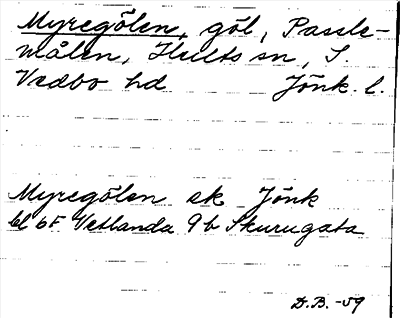 Myregölen, göl, Passle-
målen, Hults sn, S.
Vedbo hd Jönk. l.
Myregölen ek Jönk
bl 6F Vetlanda 9b Skurugata
D.B. -59